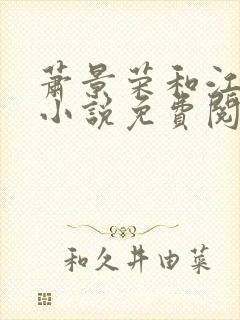 萧景荣和江
小說免費閱
和久井由菜